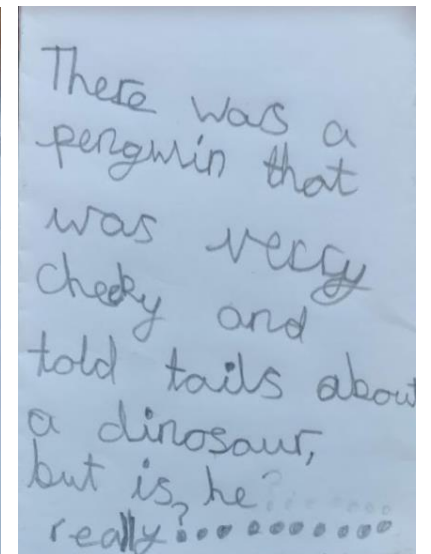 There was a
pengwin that
was verry
cheeky and
told tails about
a dinosaur,
but is he?......
really?...........